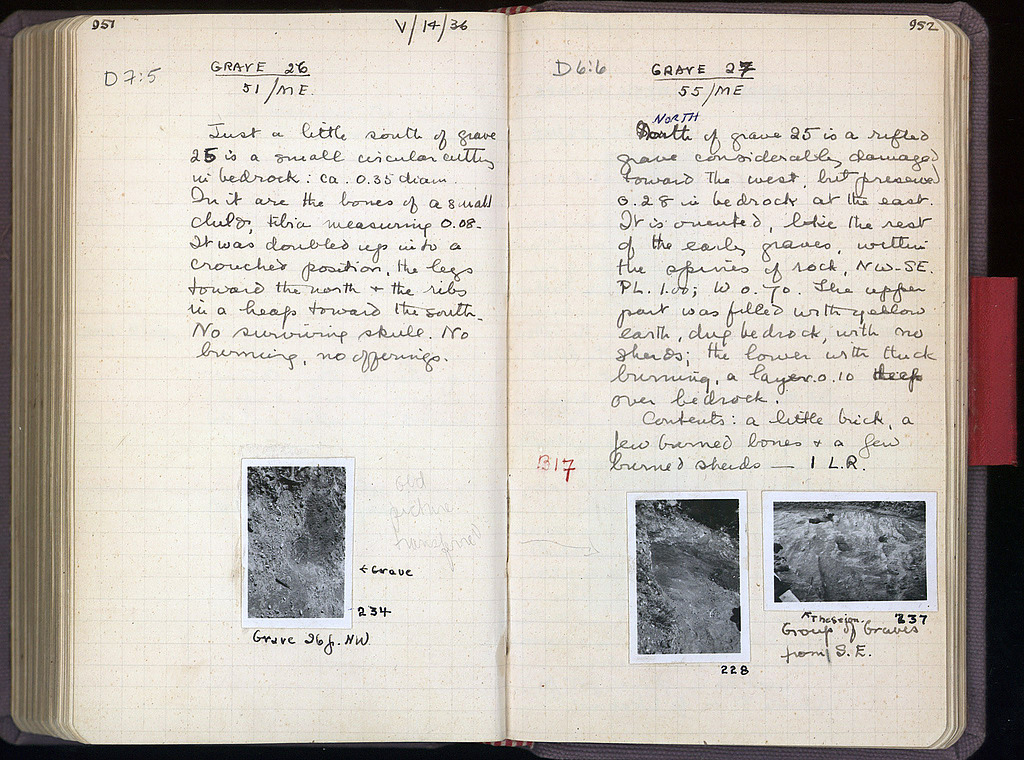 951
V/14/36
D7:5
GRAVE 26
51/ME.
Just a little south of grave
25 is a small circular cutting
in bedrock: ca. 0.35 diam.
In it are the bones of a small
child, tibia measuring 0.08.
It was doubled up into a
crouched position, the legs
toward the north + the ribs
in a heap toward the south.
No surviving skull. No
burning, no offerings.
old
picture
transferred
← Grave
234
Grave 26 f. NW
952
D6:6
GRAVE 27
55/ME
NORTH
South of grave 25 is a rifled
grave considerably damaged
toward the west, but preserved
0.28 in bedrock at the east.
It is oriented, like the rest
of the early graves, within
the spines of rock, NW-SE.
PL. 1.00; W 0.70. The upper
part was filled with yellow
earth, dug bedrock, with no
sherds; the lower with thick
burning, a layer 0.10 deep
over bedrock.
Contents: a little brick, a
few burned bones + a few
burned sherds — 1 L.R.
B17
228
Theseion.
237
Group of Graves
from S.E.